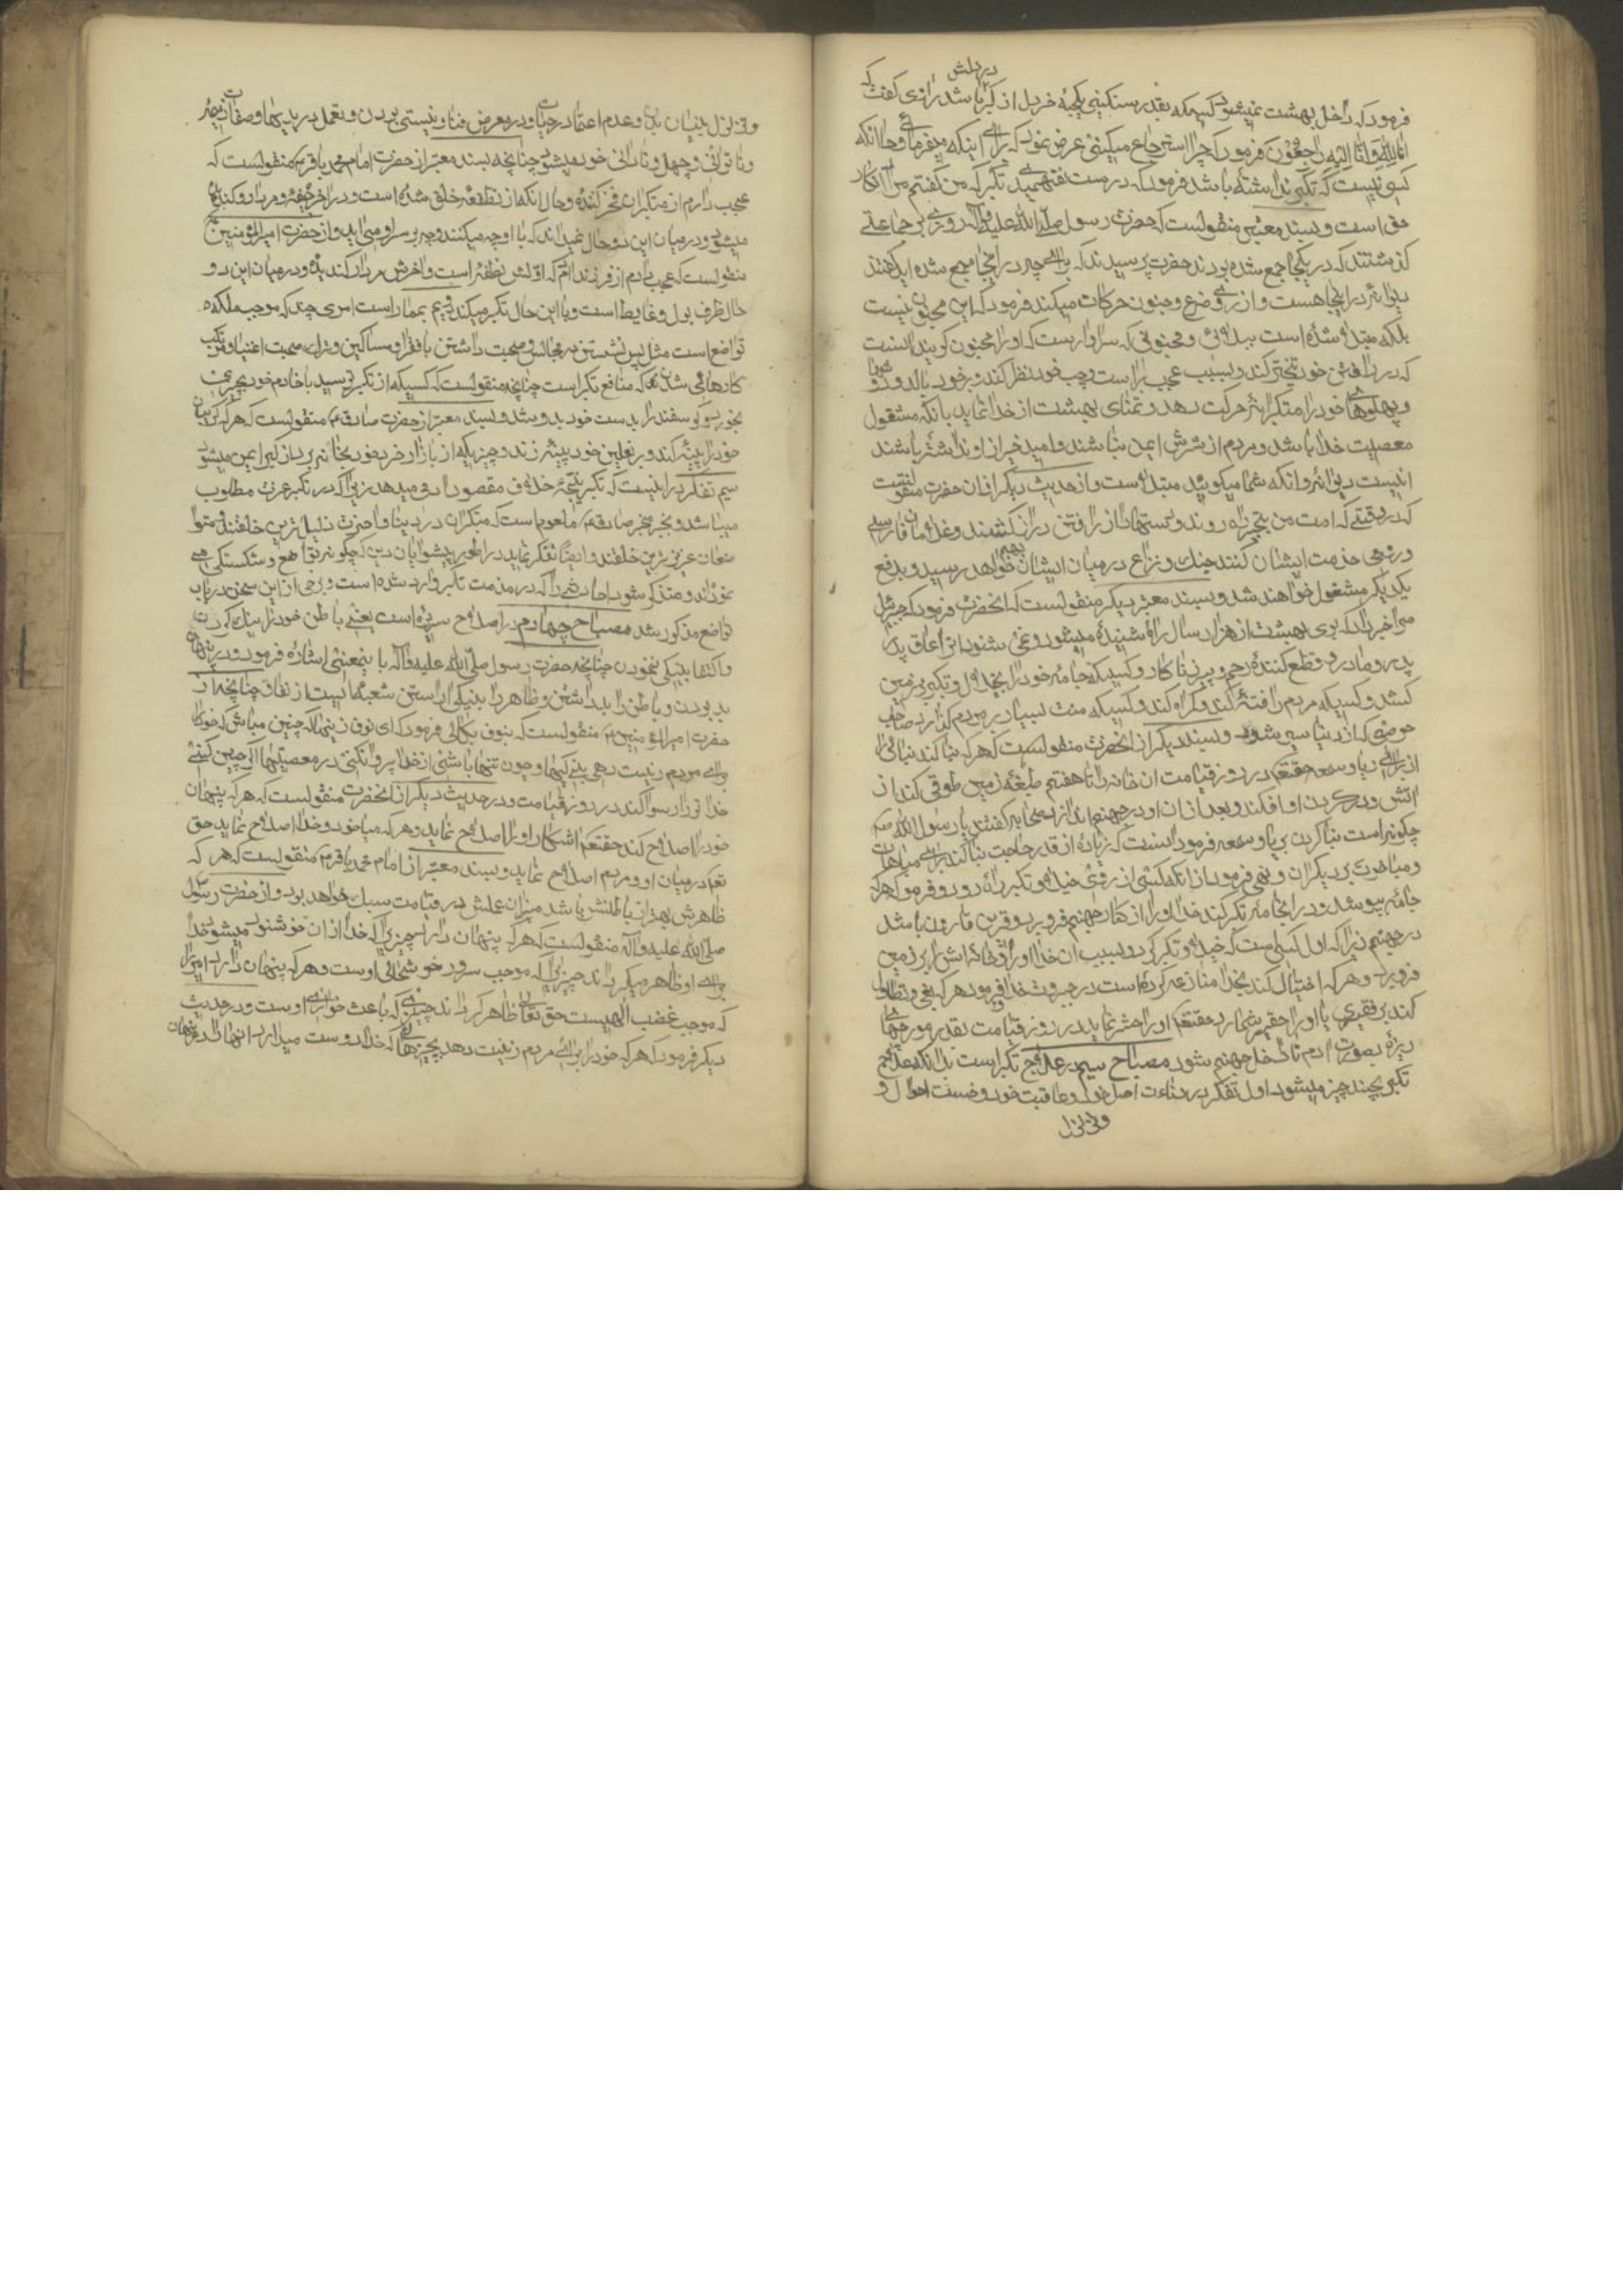 در دلش
فرمود که داخل بهشت نمیشود کسیکه بقدر سنکینی یکحبه خردل از کبر باشد راوی کفت که
انا لله و انا الیه راجعون فرمود که چرا استرجاع میکنی عرض نمود که برای اینکه میفرمائی و حال انکه
کسی نیست که تکبر نداشته باشد فرمود که درست نفهمیدی تکبر که من کفتم مراد انکار
حق است و بسند معتبر منقولست که حضرت رسول صلی الله علیه و آله روزی بر جماعتی
کذشتند که در یکجا جمع شده بودند حضرت پرسیدند که برای چه در اینجا جمع شده اید کفتند
دیوانه در اینجا هست و از روی صرع و جنون حرکات میکند فرمود که این مجنون نیست
بلکه مبتلا شده است ببلائی و مجنونی که سزاوارست که او را مجنون کویند انست
که در راه رفتن خود تبختر کند و بسبب عجب براست و چپ خود نظر کند و بر خود ببالد و دوشها
و پهلوهای خود را متکبرانه حرکت دهد و تمنای بهشت از خدا نماید با انکه مشغول
معصیت خدا باشد و مردم از شرش ایمن نباشند و امید خیر از او نداشته باشند
اینست دیوانه و انکه شما میکوئید مبتلا است و از حدیث دیکر از ان حضرت منقولست
که در وقتی که امت من متکبرانه راه روند و دستها در راه رفتن دراز کشند و غلامان فارسی
و رومی خدمت ایشان کنند جنک و نزاع در میان ایشان بهم خواهد رسید و بدفع
یکدیکر مشغول خواهند شد و بسند معتبر دیکر منقولست که انحضرت فرمود که جبرئیل
مرا خبر داد که بوی بهشت از هزار سال راه شنیده میشود و نمی شنود انرا عاق پدر
و مادر و قطع کننده رحم و پیر زناکار و کسیکه جامه خود را بخیلا و تکبر بر زمین
کشد و کسیکه مردم را فتنه کند و کمراه کند و کسیکه منت بسیار بر مردم کذارد و صاحب
حرصی که از دنیا سیر نشود و بسند دیکر از انحضرت منقولست که هر که بنا کند بنائی را
از برای ریا و سمعه حقتعالی در روز قیامت ان خانه را تا هفتم طبقه زمین طوقی کند از
اتش و در کردن او افکند و بعد از ان او را در جهنم اندازد صحابه کفتند یا رسول الله ص
چکونه است بنا کردن بریا و سمعه فرمود انست که زیاده از قدر حاجت بنا کند برای مباهات
و مباهات بر دیکران و نهی فرمود از انکه کسی از روی خیلا و تکبر راه رود و فرمود هر که
جامه بپوشد و در انجامه تکبر کند خدا او را از کنار جهنم فرو برد و قرین قارون باشد
در جهنم زیرا که اول کسی است که خیلا و تکبر کرد و بسبب ان خدا او را و خانه اش را بزمین
فرو برد و هر که اختیال کند بخدا منازعه کرده است در جبروت خدا و فرمود هر که بغی و تطاول
کند بر فقیری یا او را حقیر شمارد حقتعالی او را حشر نماید در روز قیامت بقدر مورچهای
ریزه بصورت ادم تا داخل جهنم شود مصباح سیم در علاج تکبر است بدانکه علاج
تکبر بچند چیز میشود اول تفکر در دنائت اصل خود و عاقبت خود و خست احوال و
و تزلزل
و تزلزل بنیان بدن و عدم اعتماد در حیات و در معرض فنا و نیستی بودن و تعمل در بدیها و صفات ذمیمه
و ناتوانی و جهل و نادانی خود میشود چنانچه بسند معتبر از حضرت امام محمد باقر ع منقولست که
عجب دارم از متکبران فخر کننده و حال انکه از نطفه خلق شده است و در اخر جیفه و مردار و کندیده
میشود و در میان این دو حال نمیداند که با او چه میکنند و چه بر سر او می اید و از حضرت امیر المؤمنین ع
منقولست که عجب دارم از فرزند ادم که اولش نطفه است و اخرش مردار کندیده و در میان این دو
حال ظرف بول و غایط است و با این حال تکبر میکند دویم بممارست امری چند که موجب ملکه
تواضع است مثل پس نشستن در مجالس و صحبت داشتن با فقرا و مساکین و ترک صحبت اغنیا و مرتکب
کارهائی شدن که منافع تکبر است چنانچه منقولست که کسیکه از تکبر ترسید با خادم خود چیزی
بخورد و کوسفند را بدست خود بدوشد و بسند معتبر از حضرت صادق ع منقولست که هر که کریبان
خود را پینه کند و بر نعلین خود پینه زند و چیزیکه از بازار خرد خود بخانه برد از کبر ایمن میشود
سیم تفکر در اینست که تکبر نتیجه خلاف مقصود او می دهد زیرا که در تکبر عزت مطلوب
میباشد و بخبر مخبر صادق ع معلوم است که متکبران در دنیا و اخرت ذلیل ترین خلقند و متوا
ضعان عزیز ترین خلقند و ایضا تفکر نماید در اطوار پیشوایان دین که چکونه تواضع و شکستکی می
نموداند و متذکر شود احادیثی را که در مذمت تکبر وارد شده است و برخی از این سخن در باب
تواضع مذکور شد مصباح چهارم در اصلاح سریره است یعنی باطن خود را نیک کردن
و اکتفا بنیکی نمودن چنانچه حضرت رسول صلی الله علیه و آله باین معنی اشاره فرمود و در پنهان
بد بودن و باطن را بد داشتن و ظاهر را بنیکی اراستن شعبه ایست از نفاق چنانچه از
حضرت امیر المؤمنین ع منقولست که بنوف بکالی فرمود که ای نوف زینهار که چنین مباش که خود را
برای مردم زینت دهی بنیکیها و چون تنها باشی از خدا پروا نکنی در معصیتها اکر چنین کنی
خدا تو را رسوا کند در روز قیامت و در حدیث دیکر از انحضرت منقولست که هر که پنهان
خود را اصلاح کند حقتعالی اشکار او را اصلاح نماید و هر که میان خود و خدا اصلاح نماید حق
تعالی در میان او و مردم اصلاح نماید و بسند معتبر از امام محمد باقر ع منقولست که هر که
ظاهرش بهتر از باطنش باشد میزان عملش در قیامت سبک خواهد بود و از حضرت رسول
صلی الله علیه و آله منقولست که هر که پنهان دارد چیزی را که خدا از ان خوشنود میشود خدا
برای او ظاهر میکرداند چیزی را که موجب سرور و خوشحالی اوست و هر که پنهان دارد امری را
که موجب غضب الهیست حق تعالی ظاهر کرداند چیزی که باعث خواری اوست و در حدیث
دیکر فرمود که هر که خود را برای مردم زینت دهد بچیزهائی که خدا دوست میدارد انها را و در پنهان